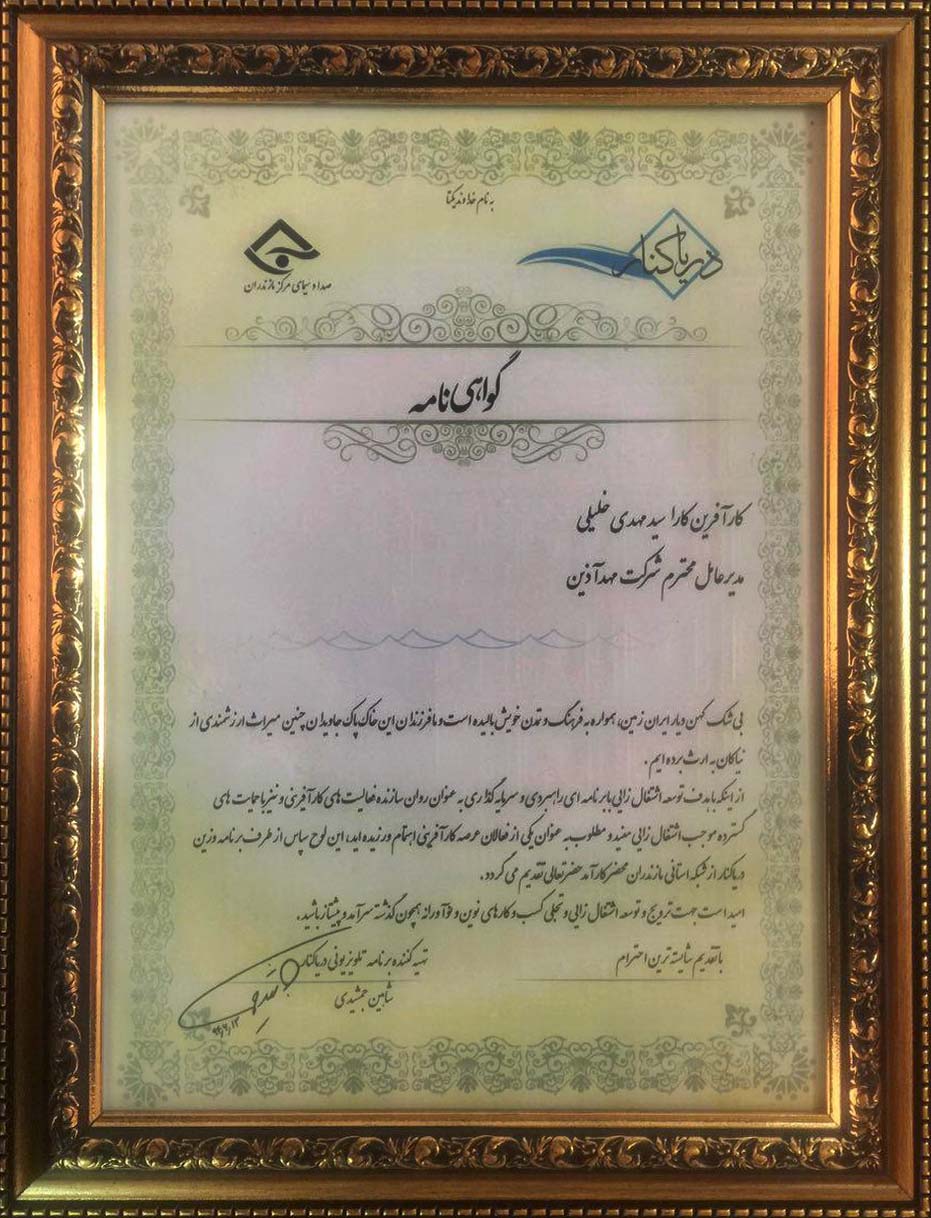 به نام خداوند یکتا
دریاکنار
صدا و سیمای مرکز مازندران
گواهی نامه
کارآفرین کارا سید مهدی خلیلی
مدیرعامل محترم شرکت مهد آذین
بی شک کهن دیار ایران زمین، همواره به فرهنگ و تمدن خویش بالیده است و ما فرزندان این خاک پاک جاویدان چنین میراث ارزشمندی از
نیاکان به ارث برده ایم.
از اینکه با هدف توسعه اشتغال زایی با برنامه ای راهبردی و سرمایه گذاری به عنوان روان سازنده فعالیت های کارآفرینی و نیز با حمایت های
گسترده موجب اشتغال زایی مفید و مطلوب به عنوان یکی از فعالان عرصه کارآفرینی اهتمام ورزیده اید، این لوح سپاس از طرف برنامه وزین
دریاکنار از شبکه استانی مازندران محضر کارآمد حضرتعالی تقدیم می گردد.
امید است جهت ترویج و توسعه اشتغال زایی و تجلی کسب و کارهای نوین و نوآورانه همچون گذشته سرآمد و پیشتاز باشید.
با تقدیم شایسته ترین احترام
تهیه کننده برنامه تلویزیونی دریاکنار
شاهین جمشیدی